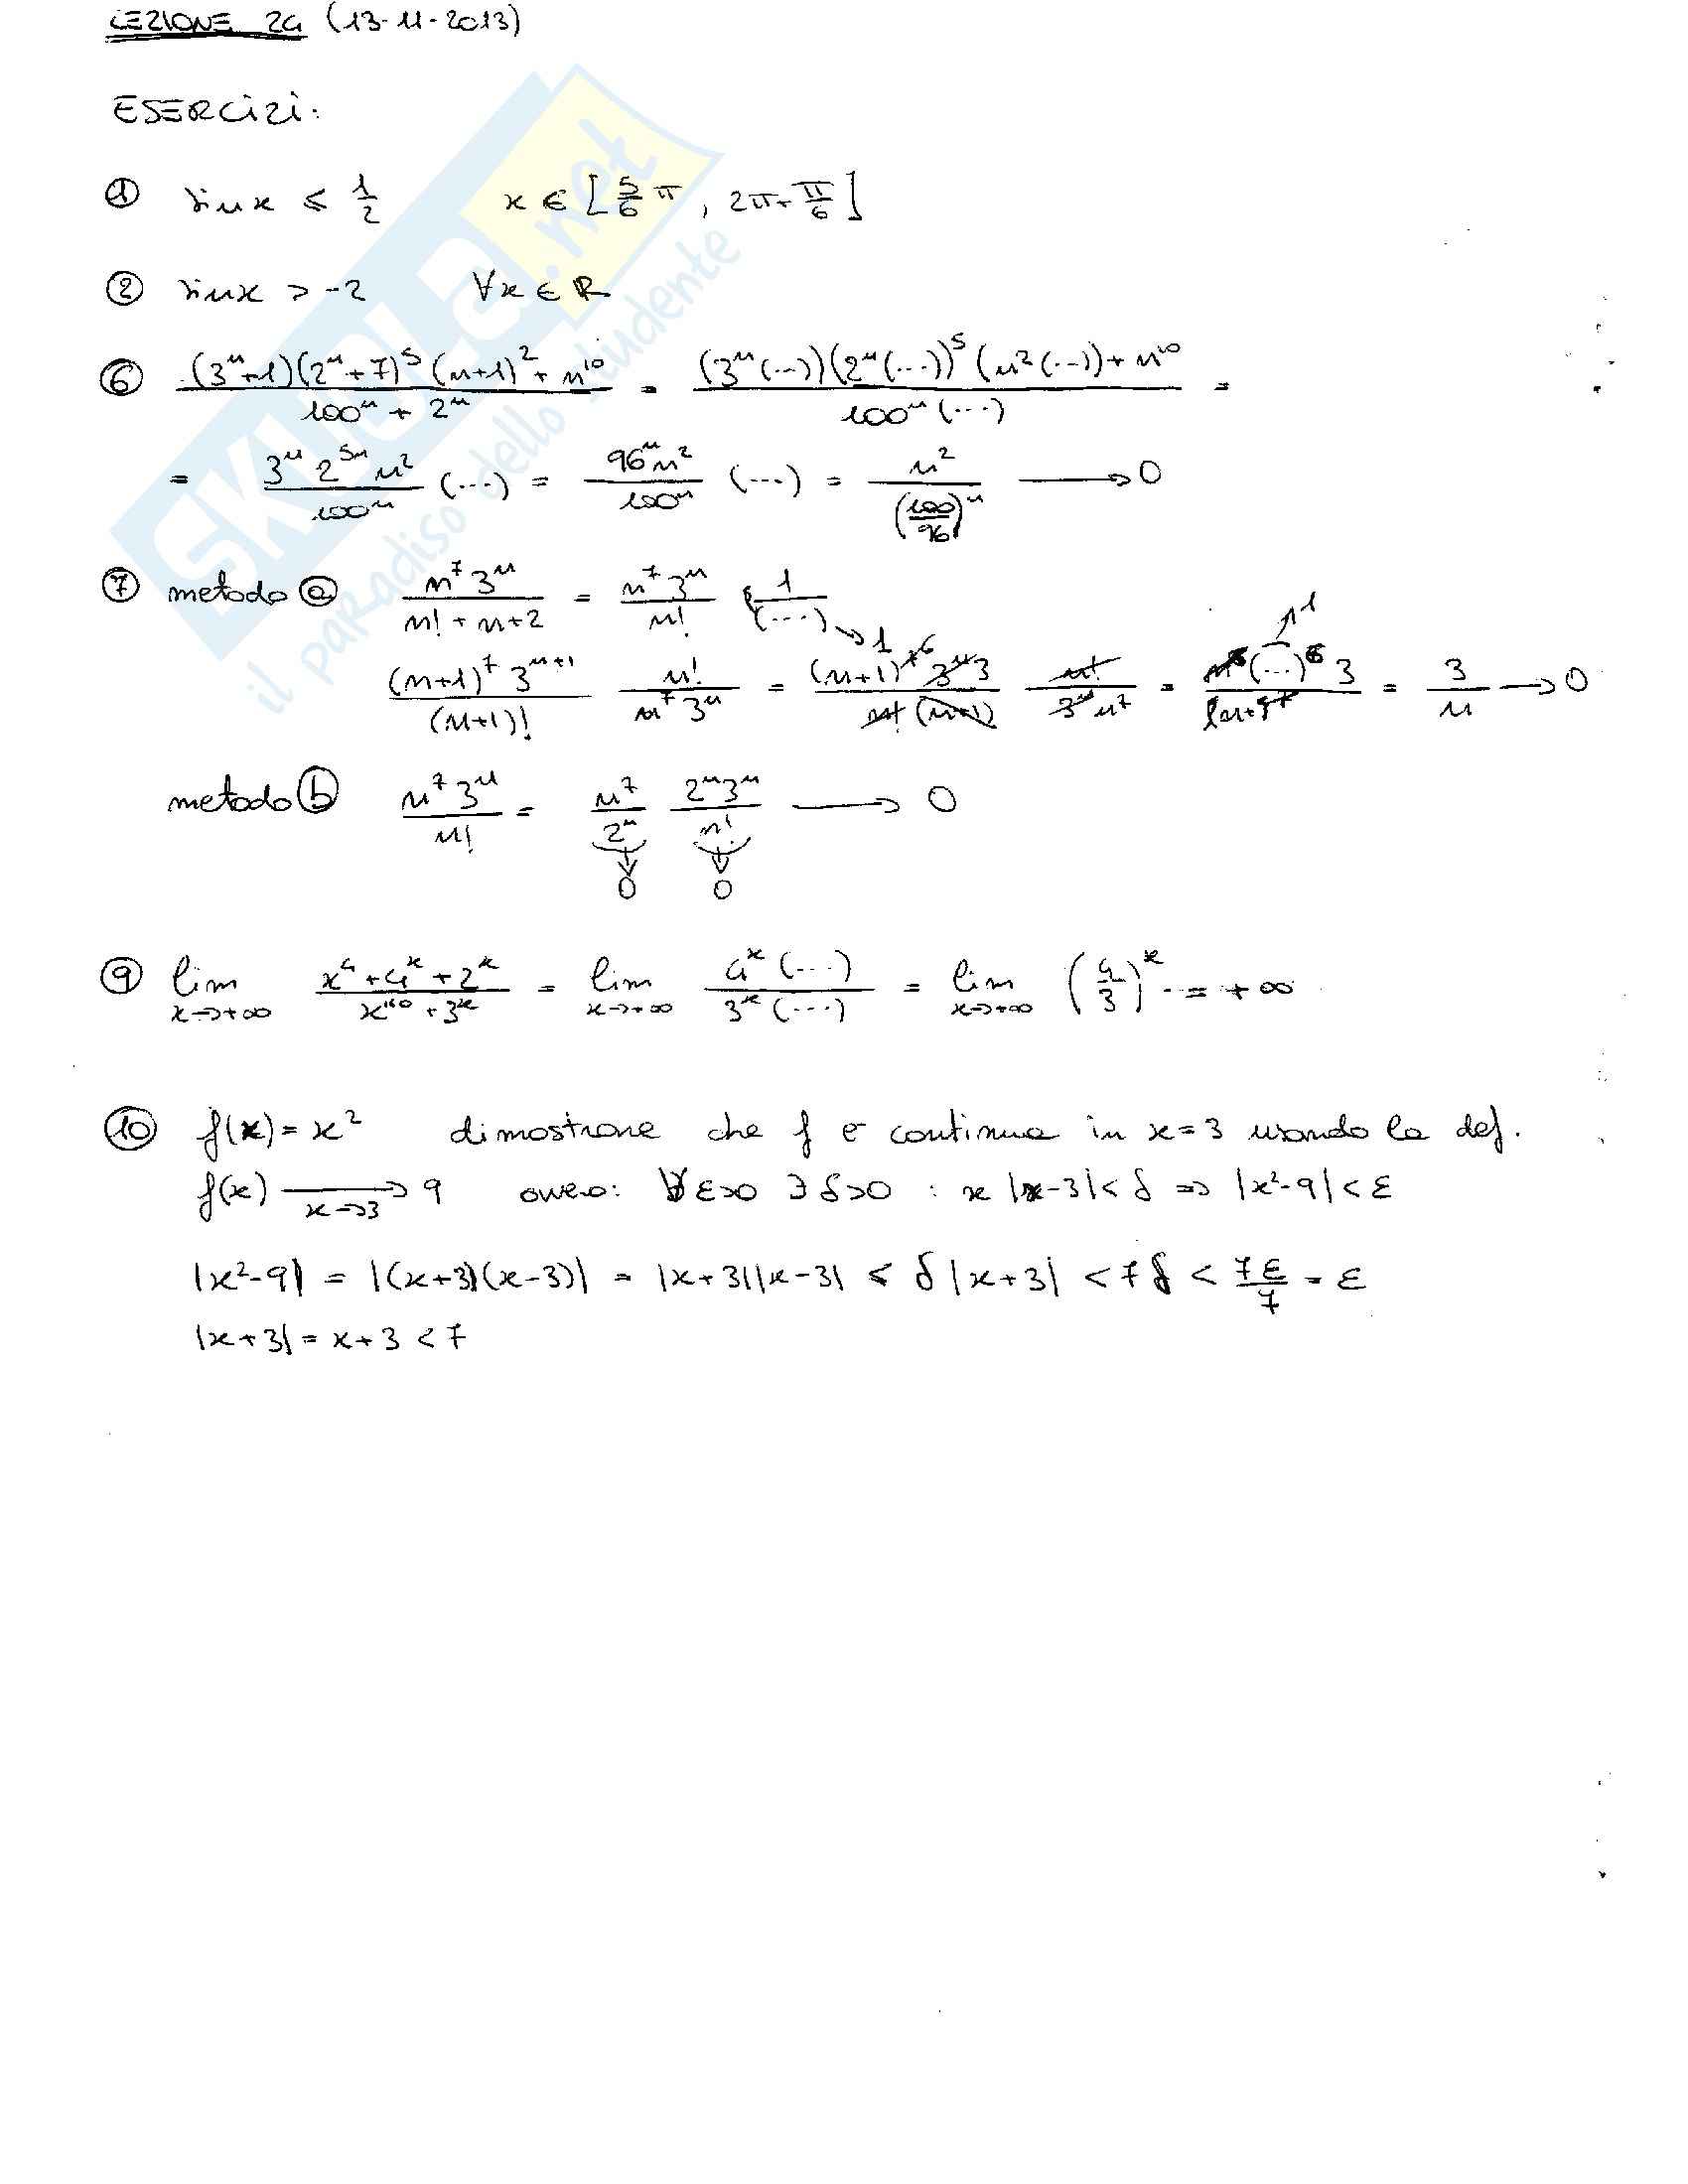 LEZIONE 24 (13-11-2013)
ESERCIZI:
① sin x ≤ 1/2 x ∈ [5/6 π, 2π+π/6]
② sin x > -2 ∀x ∈ R
⑥ ((3^n+1)(2^n+7)^5(n+1)^2+n^10)/(100^n+2^n) = ((3^n(...))(2^n(...))^5(n^2(...))+n^10)/(100^n(...)) =
= (3^n 2^5n n^2)/(100^n) (...) = (96^n n^2)/(100^n) (...) = n^2/(100/96)^n → 0
⑦ metodo ⓐ (n^7 3^n)/(n!+n+2) = (n^7 3^n)/(n!) 1/(...) → 1
((n+1)^7 3^(n+1))/((n+1)!) (n!)/(n^7 3^n) = ((n+1)^6 3^n 3)/(n!(n+1)) (n!)/(3^n n^7) = (n^6(...)^6 3)/(n^7) = 3/n → 0
metodo ⓑ (n^7 3^n)/(n!) = n^7/2^n (2^n 3^n)/(n!) → 0
0 0
⑨ lim x→+∞ (x^4+4^x+2^x)/(x^100+3^x) = lim x→+∞ (4^x(...))/(3^x(...)) = lim x→+∞ (4/3)^x = +∞
⑩ f(x)=x² dimostrare che f è continua in x=3 usando la def.
f(x) → x→3 9 ovvero: ∀ε>0 ∃δ>0 : x |x-3|<δ ⇒ |x²-9|<ε
|x²-9| = |(x+3)(x-3)| = |x+3||x-3| ≤ δ|x+3| < 7δ < 7ε/7 = ε
|x+3| = x+3 < 7
SKUOLA.net
il paradiso dello studente